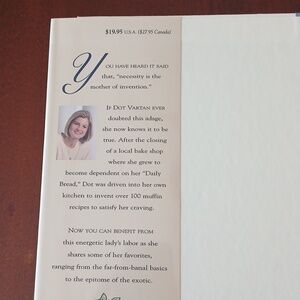 $19.95 U.S.A. ($27.95 Canada)
YOU HAVE HEARD IT SAID
that, "necessity is the
mother of invention."
IF DOT VARTAN EVER
doubted this adage,
she now knows it to be
true. After the closing
of a local bake shop
where she grew to
become dependent on her "Daily
Bread," Dot was driven into her own
kitchen to invent over 100 muffin
recipes to satisfy her craving.
NOW YOU CAN BENEFIT FROM
this energetic lady's labor as she
shares some of her favorites,
ranging from the far-from-banal basics
to the epitome of the exotic.